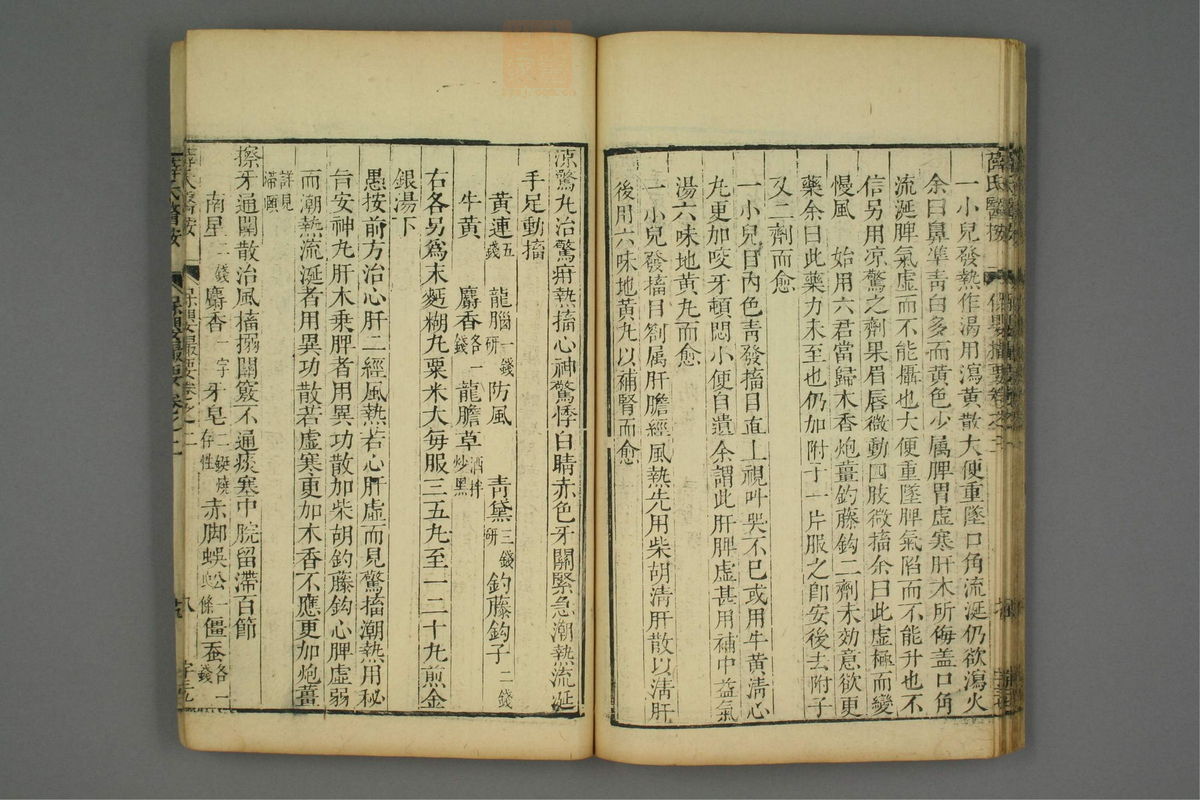 薛氏醫按 保嬰撮要卷之二
一小兒發熱作渴用瀉黃散大便重墜口角流涎仍欲瀉火
余曰鼻準青白多而黃色少属脾胃虛寒肝木所侮盖口角
流涎脾氣虛而不能攝也大便重墜脾氣陷而不能升也不
信另用凉驚之劑果眉唇微動四肢微搐余曰此虛極而變
慢風 始用六君當歸木香炮薑釣藤鈎二劑未効意欲更
藥余曰此藥力未至也仍加附子一片服之卽安後去附子
又二劑而愈
一小兒目內色青發搐目直上視呌哭不已或用牛黃淸心
丸更加咬牙頓悶小便自遺余謂此肝脾虛甚用補中益氣
湯六味地黃丸而愈
一小兒發搐目劄属肝膽經風熱先用柴胡淸肝散以淸肝
後用六味地黃丸以補腎而愈
凉驚丸治驚疳熱搐心神驚悸白睛赤色牙關緊急潮熱流涎
手足動搐
黃連五錢 龍腦一錢研 防風 青黛三錢研 釣藤鈎子二錢
牛黃 麝香各一錢 龍膽草酒拌炒黑
右各另爲末麪糊丸粟米大每服三五丸至一二十丸煎金
銀湯下
愚按前方治心肝二經風熱若心肝虛而見驚搐潮熱用秘
旨安神丸肝木乘脾者用異功散加柴胡釣藤鈎心脾虛弱
而潮熱流涎者用異功散若虛寒更加木香不應更加炮薑
詳見滯頤
擦牙通關散治風搐搦關竅不通痰塞中脘留滯百節
南星二錢 麝香一字 牙皂二鋌燒存性 赤脚蜈蚣一條 僵蚕各一錢
薛氏醫按 保嬰撮要卷之二 八